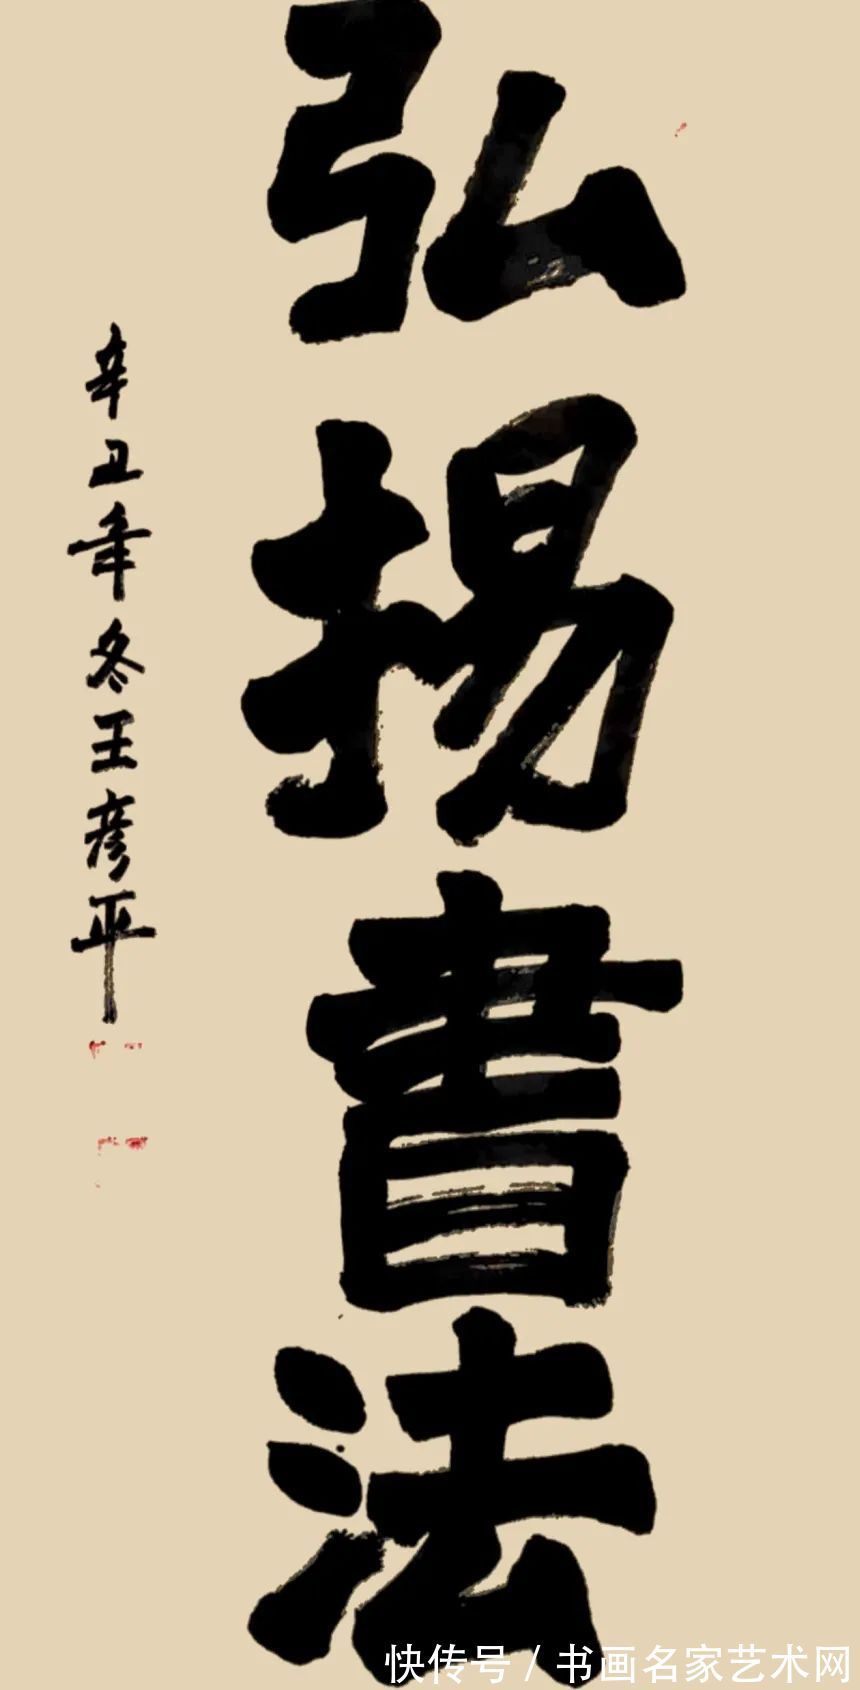 弘揚書法
辛丑年冬王彦平
快传号 / 书画名家艺术网